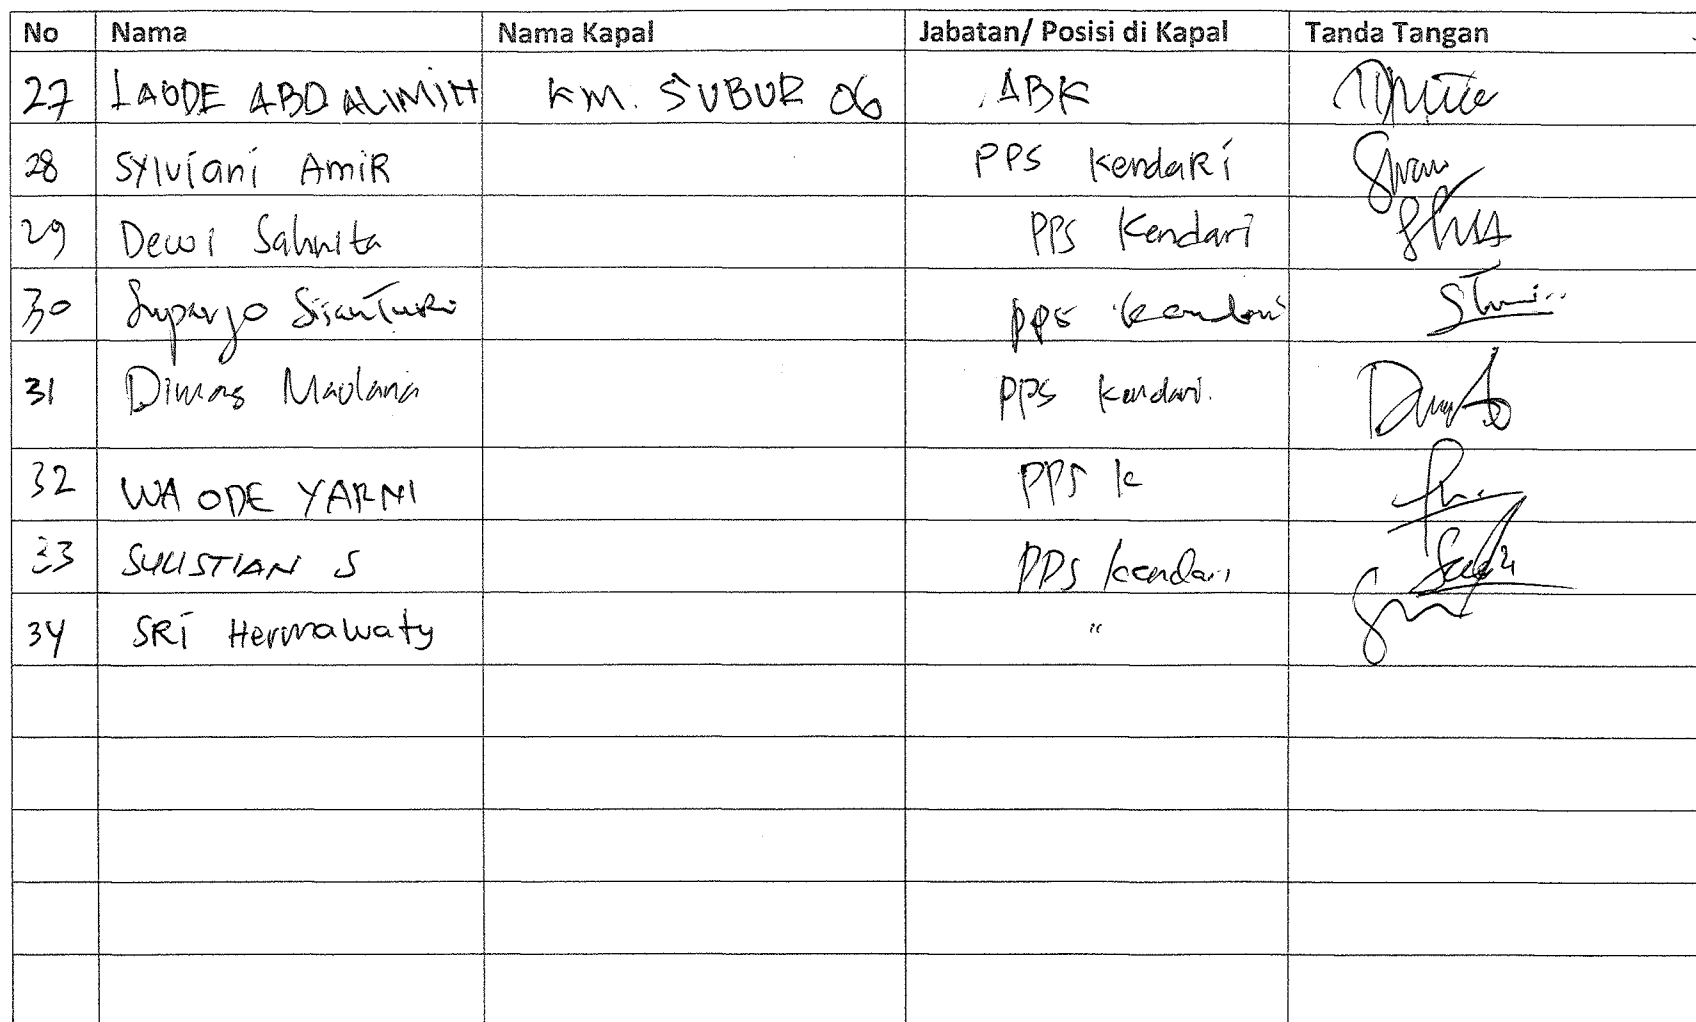 No Nama Nama Kapal Jabatan/ Posisi di Kapal Tanda Tangan
27 LAODE ABD ALIMIH KM. SUBUR 06 ABK
28 Sylviani AmiR PPS KendaRi
29 Dewi Sahnita PPS Kendari
30 Suparjo Sijanturi PPS Kendari
31 Dimas Maulana PPS Kendari.
32 WA ODE YARNI PPS K
33 SULISTIAN S PPS Kendari
34 SRi Hermawaty "